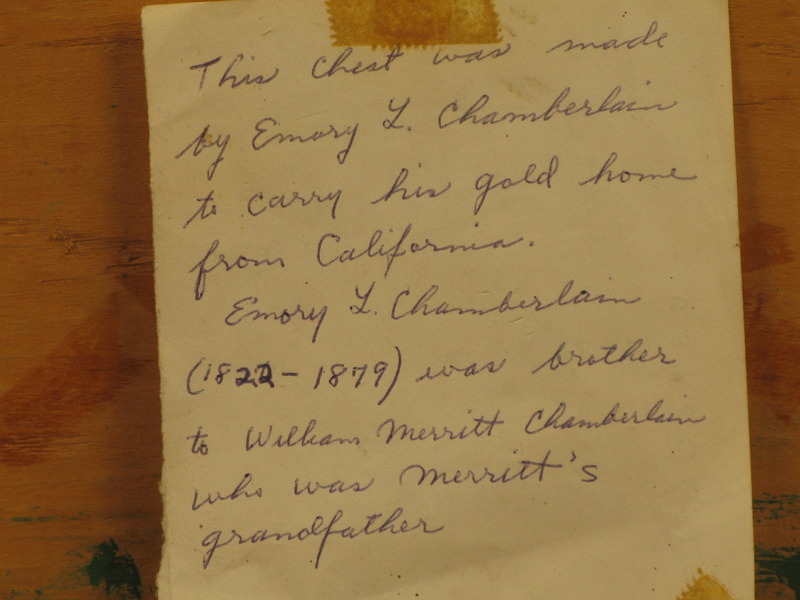 This chest was made
by Emory L. Chamberlain
to carry his gold home
from California.
Emory L. Chamberlain
(1822 - 1879) was brother
to William Merritt Chamberlain
who was Merritt's
grandfather